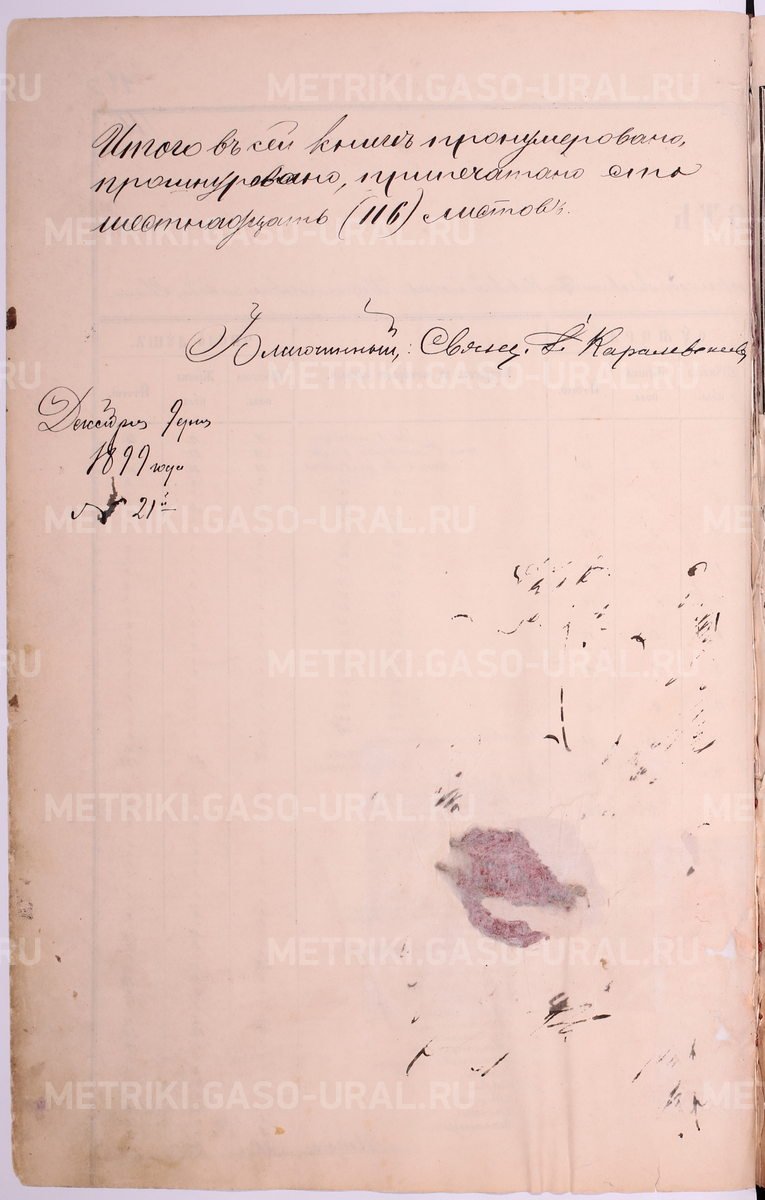 Итого въ сей книгѣ пронумеровано,
прошнуровано, припечатано сто
шестнадцать (116) листовъ.
Благочинный, Священ.
Декабря дня
1899 года
№ 21й
METRIKI.GASO-URAL.RU